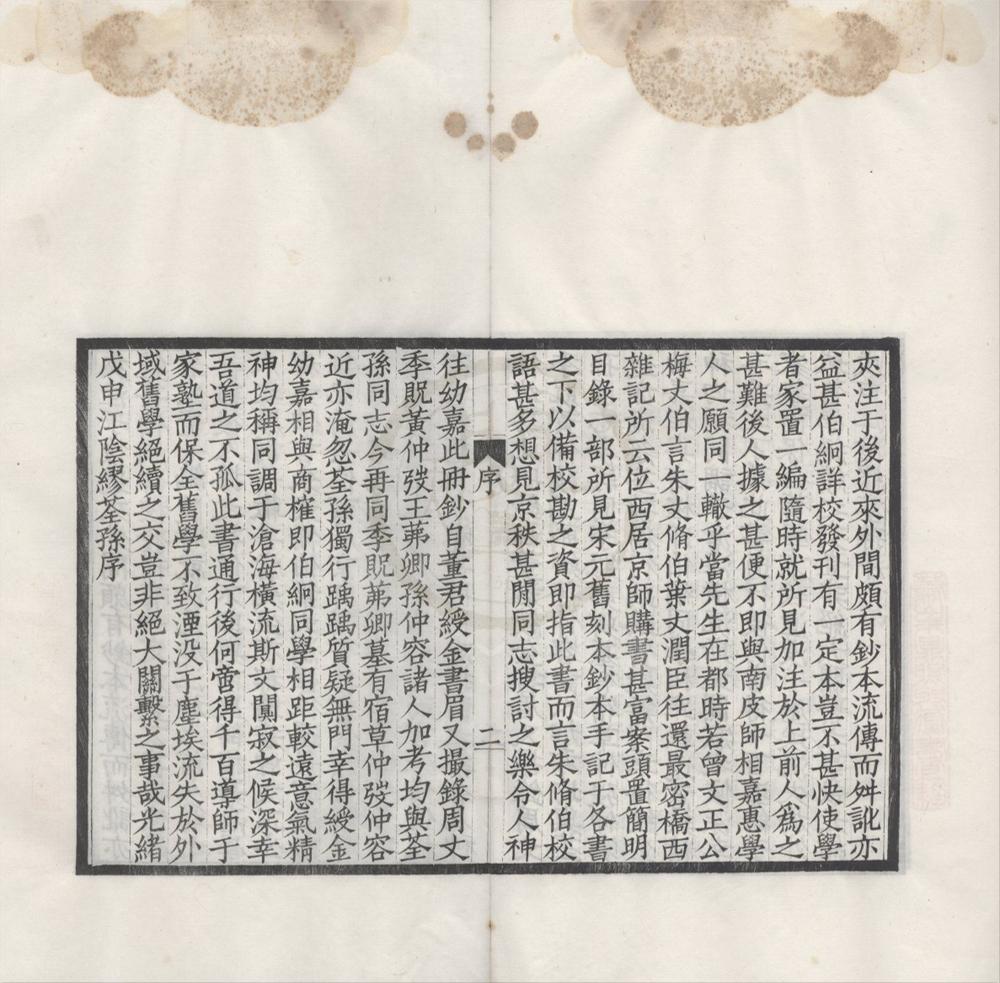 夾注于後近來外間頗有鈔本流傳而舛訛亦
益甚伯絅詳校發刊有一定本豈不甚快使學
者家置一編隨時就所見加注於上前人爲之
甚難後人據之甚便不即與南皮師相嘉惠學
人之願同一轍乎當先生在都時若曾文正公
梅丈伯言朱丈脩伯葉丈潤臣往還最密橋西
雜記所云位西居京師購書甚富案頭置簡明
目錄一部所見宋元舊刻本鈔本手記于各書
之下以備校勘之資即指此書而言朱脩伯校
語甚多想見京秩甚閒同志搜討之樂令人神
序
二
往幼嘉此冊鈔自董君綬金書眉又撮錄周丈
季貺黃仲弢王茀卿孫仲容諸人加考均與荃
孫同志今再同季貺茀卿墓有宿草仲弢仲容
近亦淹忽荃孫獨行踽踽質疑無門幸得綬金
幼嘉相與商榷即伯絅同學相距較遠意氣精
神均稱同調于滄海橫流斯文闃寂之候深幸
吾道之不孤此書通行後何啻得千百導師于
家塾而保全舊學不致湮没于塵埃流失於外
域舊學絕續之交豈非絕大關繫之事哉光緒
戊申江陰繆荃孫序